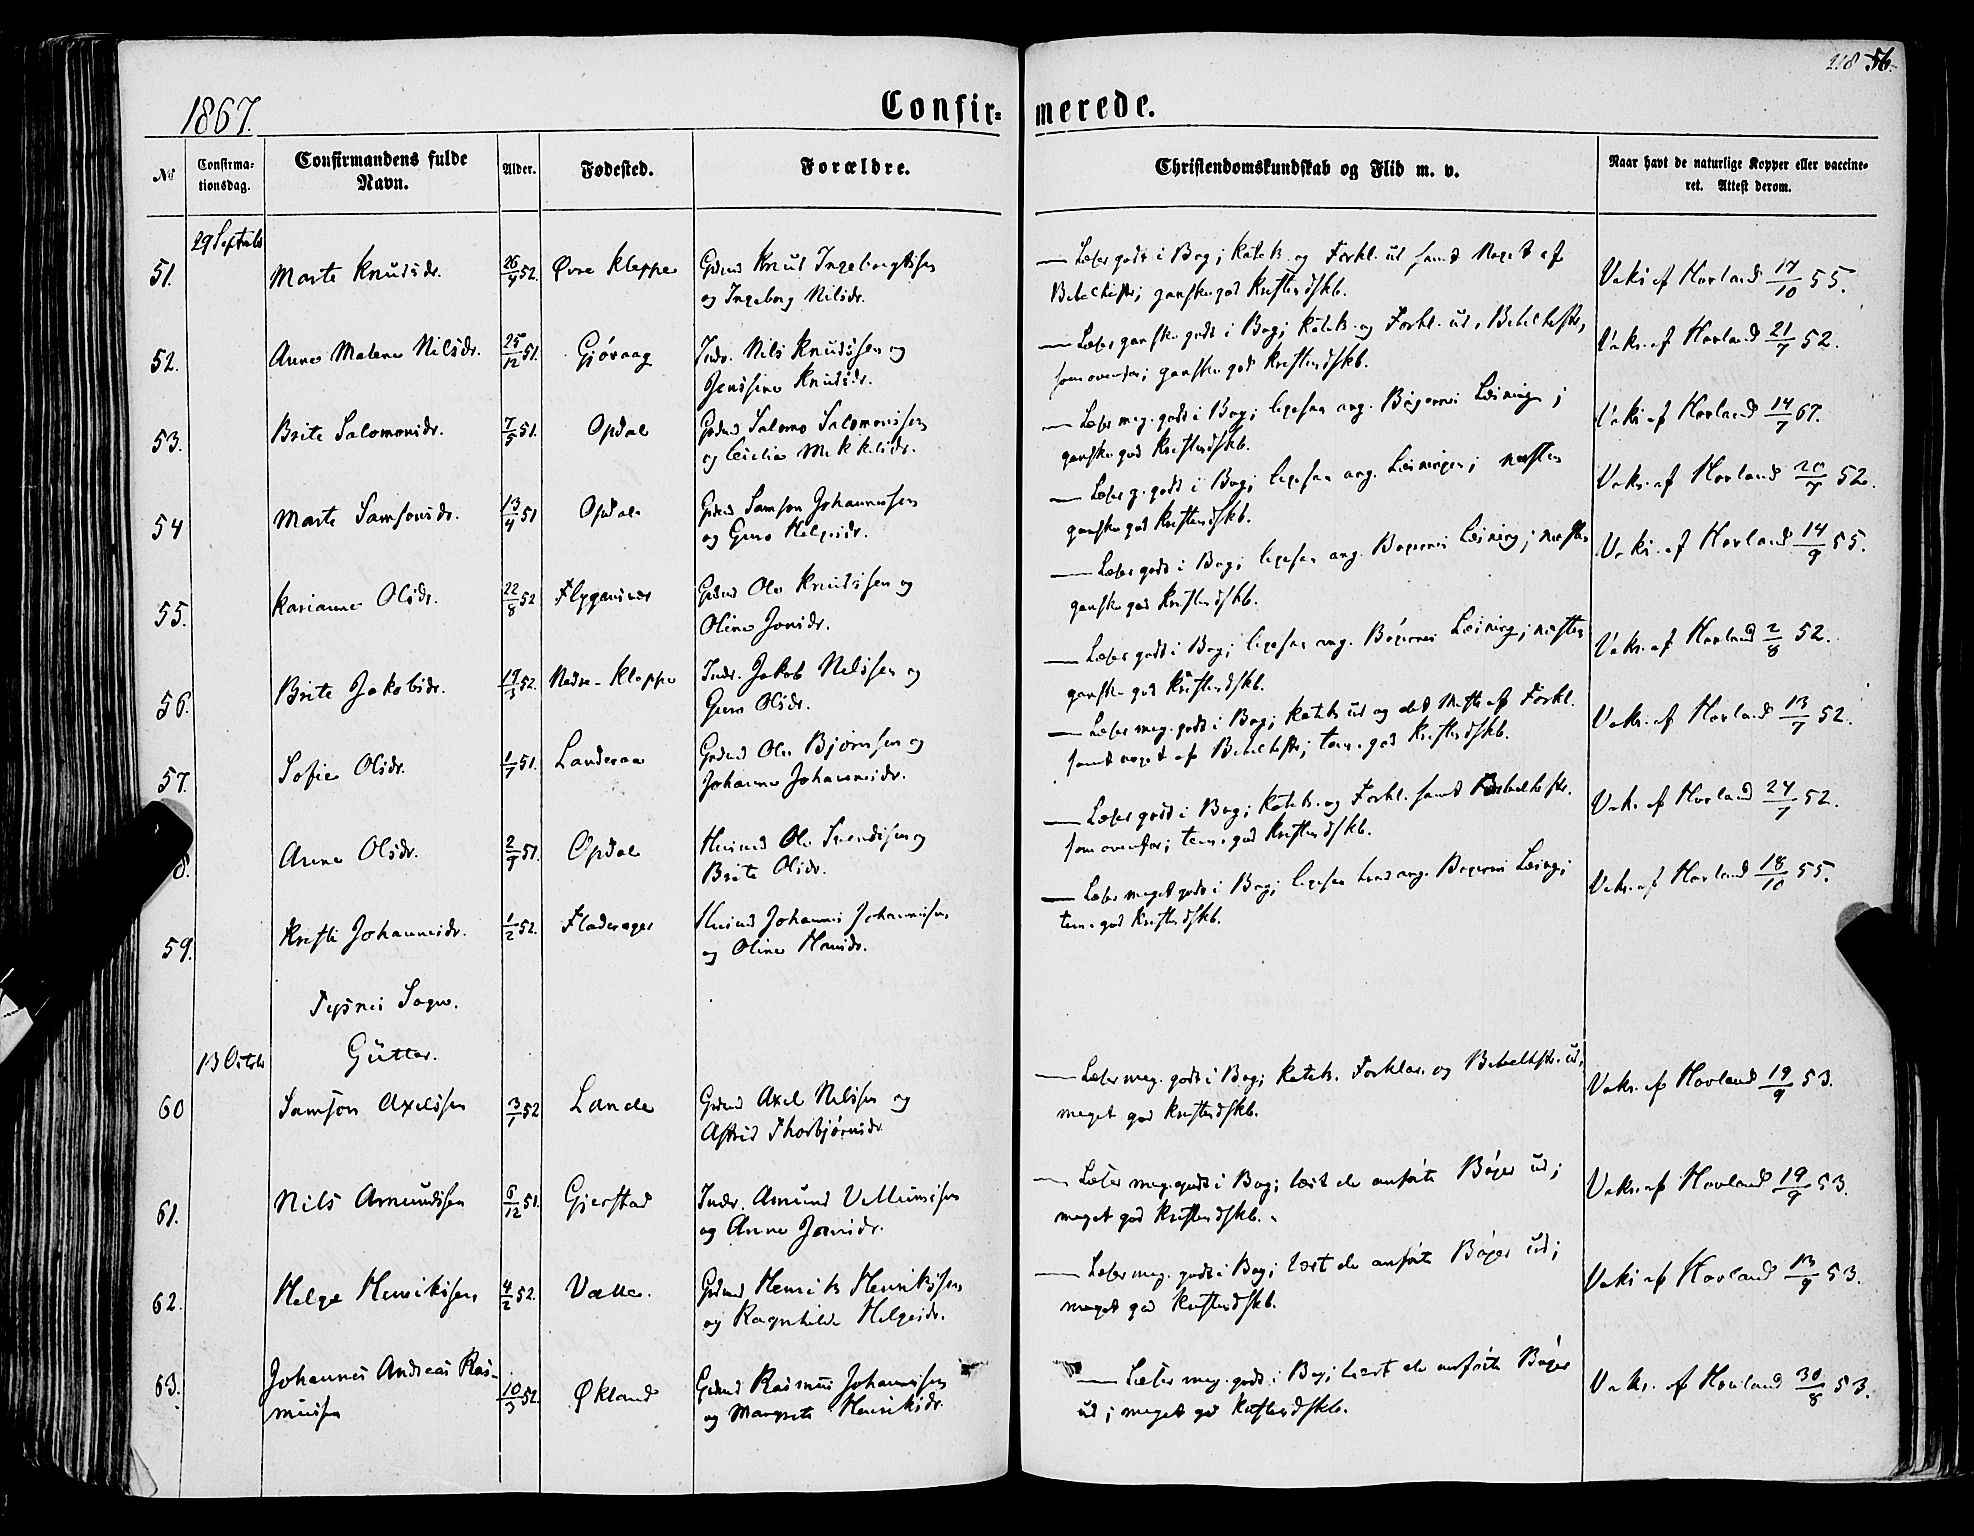 118 56.
1867.
Confir= merede.
No
Confirma=
tionsdag.
Confirmandens fulde
Navn.
Alder.
Fødested.
Forældre.
Christendomskundskab og Flid m. v.
Naar havt de naturlige Kopper eller vaccine=
ret. Attest derom.
29 Septbr
51. Marte Knutsdr. 26/4 52. Øvre Kleppe Grdmd Knut Ingebrigtsen
og Ingeborg Nilsdr.
Læser godt i Bog; Katek. og Forkl. ud samt Noget af
Bibelhist; ganske god Kristendskb.
Vaks af Hovland 17/10 55.
52. Anne Malene Nilsdr. 25/12 51. Gjøvaag Indr. Nils Knudssen og
Jensine Knutsdr.
Læser ganske godt i Bog; Katek. og Forkl. ud, Bibelhist,
som ovenfor; ganske god Kristendskb.
Vaks. af Hovland 21/7 52.
53. Brite Salomonsdr. 7/5 51. Opdal Grdmd Salomo Salomonssen
og Cicilia Mikkelsdr.
Læser meg. godt i Bog; ligesaa ang. Bøgernes Læsning;
ganske god Kristendskb.
Vaks af Hovland 14/7 67.
54 Marte Samsonsdr. 13/4 51 Opdal Grdmd Samson Johannessen
og Guro Helgesdr.
Læser g. godt i Bog; ligesaa ang. Læsningen; næsten
ganske god Kristendskb.
Vaks. af Hovland 20/7 52.
55. Karianne Olsdr. 22/8 52 Flygansvær Grdmd Ole Knutssen og
Oline Jonsdr.
Læser godt i Bog; ligesaa ang. Bøgernes Læsning; næsten
ganske god Kristendskb.
Vaks. af Hovland 14/9 55.
56. Brite Jakobsdr. 19/3 52. Nedre-Kleppe Indr. Jakob Nilssen og
Guro Olsdr.
Læser godt i Bog; ligesaa ang. Bøgernes Læsning; næsten
ganske god Kristendskb.
Vaks. af Hovland 2/8 52.
57. Sofie Olsdr. 1/7 51. Landeraa Grdmd Ole Bjørnsen og
Johanne Johannesdr.
Læser meg. godt i Bog; Katek. ud og det Meste af Forkl.
samt noget af Bibelhist; tem. god Kristendskb.
Vaks. af Hovland 13/7 52.
8. Anne Olsdr. 2/9 51. Opdal Husmd Ole Svendssen og
Brite Olsdr.
Læser godt i Bog; Katek. og Forkl. samt Bibelhist.
som ovenfor; tem. god Kristendskb.
Vaks. af Hovland 24/7 52.
59. Kristi Johannesdr. 1/2 52. Fladerager Husmd Johannes Johannessen
og Oline Hansdr.
Læser meget godt i Bog; ligesaa hvad ang. Bøgernes Læsng;
tem. god Kristendskb.
Vaks. af Hovland 18/10 55.
Tysnes Sogn.
13 Octobr Gutter.
60 Samson Axelssen 3/7 52 Lande Grdmd Axel Nilssen og
Astrid Thorbjørnsdr
Læser meg. godt i Bog; Katek. Forklar. og Bibelhist. ud;
meget god Kristendskb.
Vaks. af Hovland 19/9 53.
61. Nils Amundssen 6/12 51. Gjerstad Indr. Amund Villumssen
og Anne Jonsdr.
Læser meg. godt i Bog; læst de anførte Bøger ud;
meget god Kristendskb.
Vaks. af Hovland 19/9 53.
62. Helge Henrikssen 4/2 52. Valle. Grdmd Henrik Henrikssen
og Ragnhilde Helgesdr.
Læser meg. godt i Bog; læst de anførte Bøger ud;
meget god Kristendskb.
Vaks af Hovland 13/9 53.
63. Johannes Andreas Ras-
mussen 10/3 52. Økland Grdmd Rasmus Johannessen
og Margrete Henriksdr.
Læser meg. godt i Bog; læst de anførte Bøger
ud; meget god Kristendskb.
Vaks. af Hovland 30/8 53.